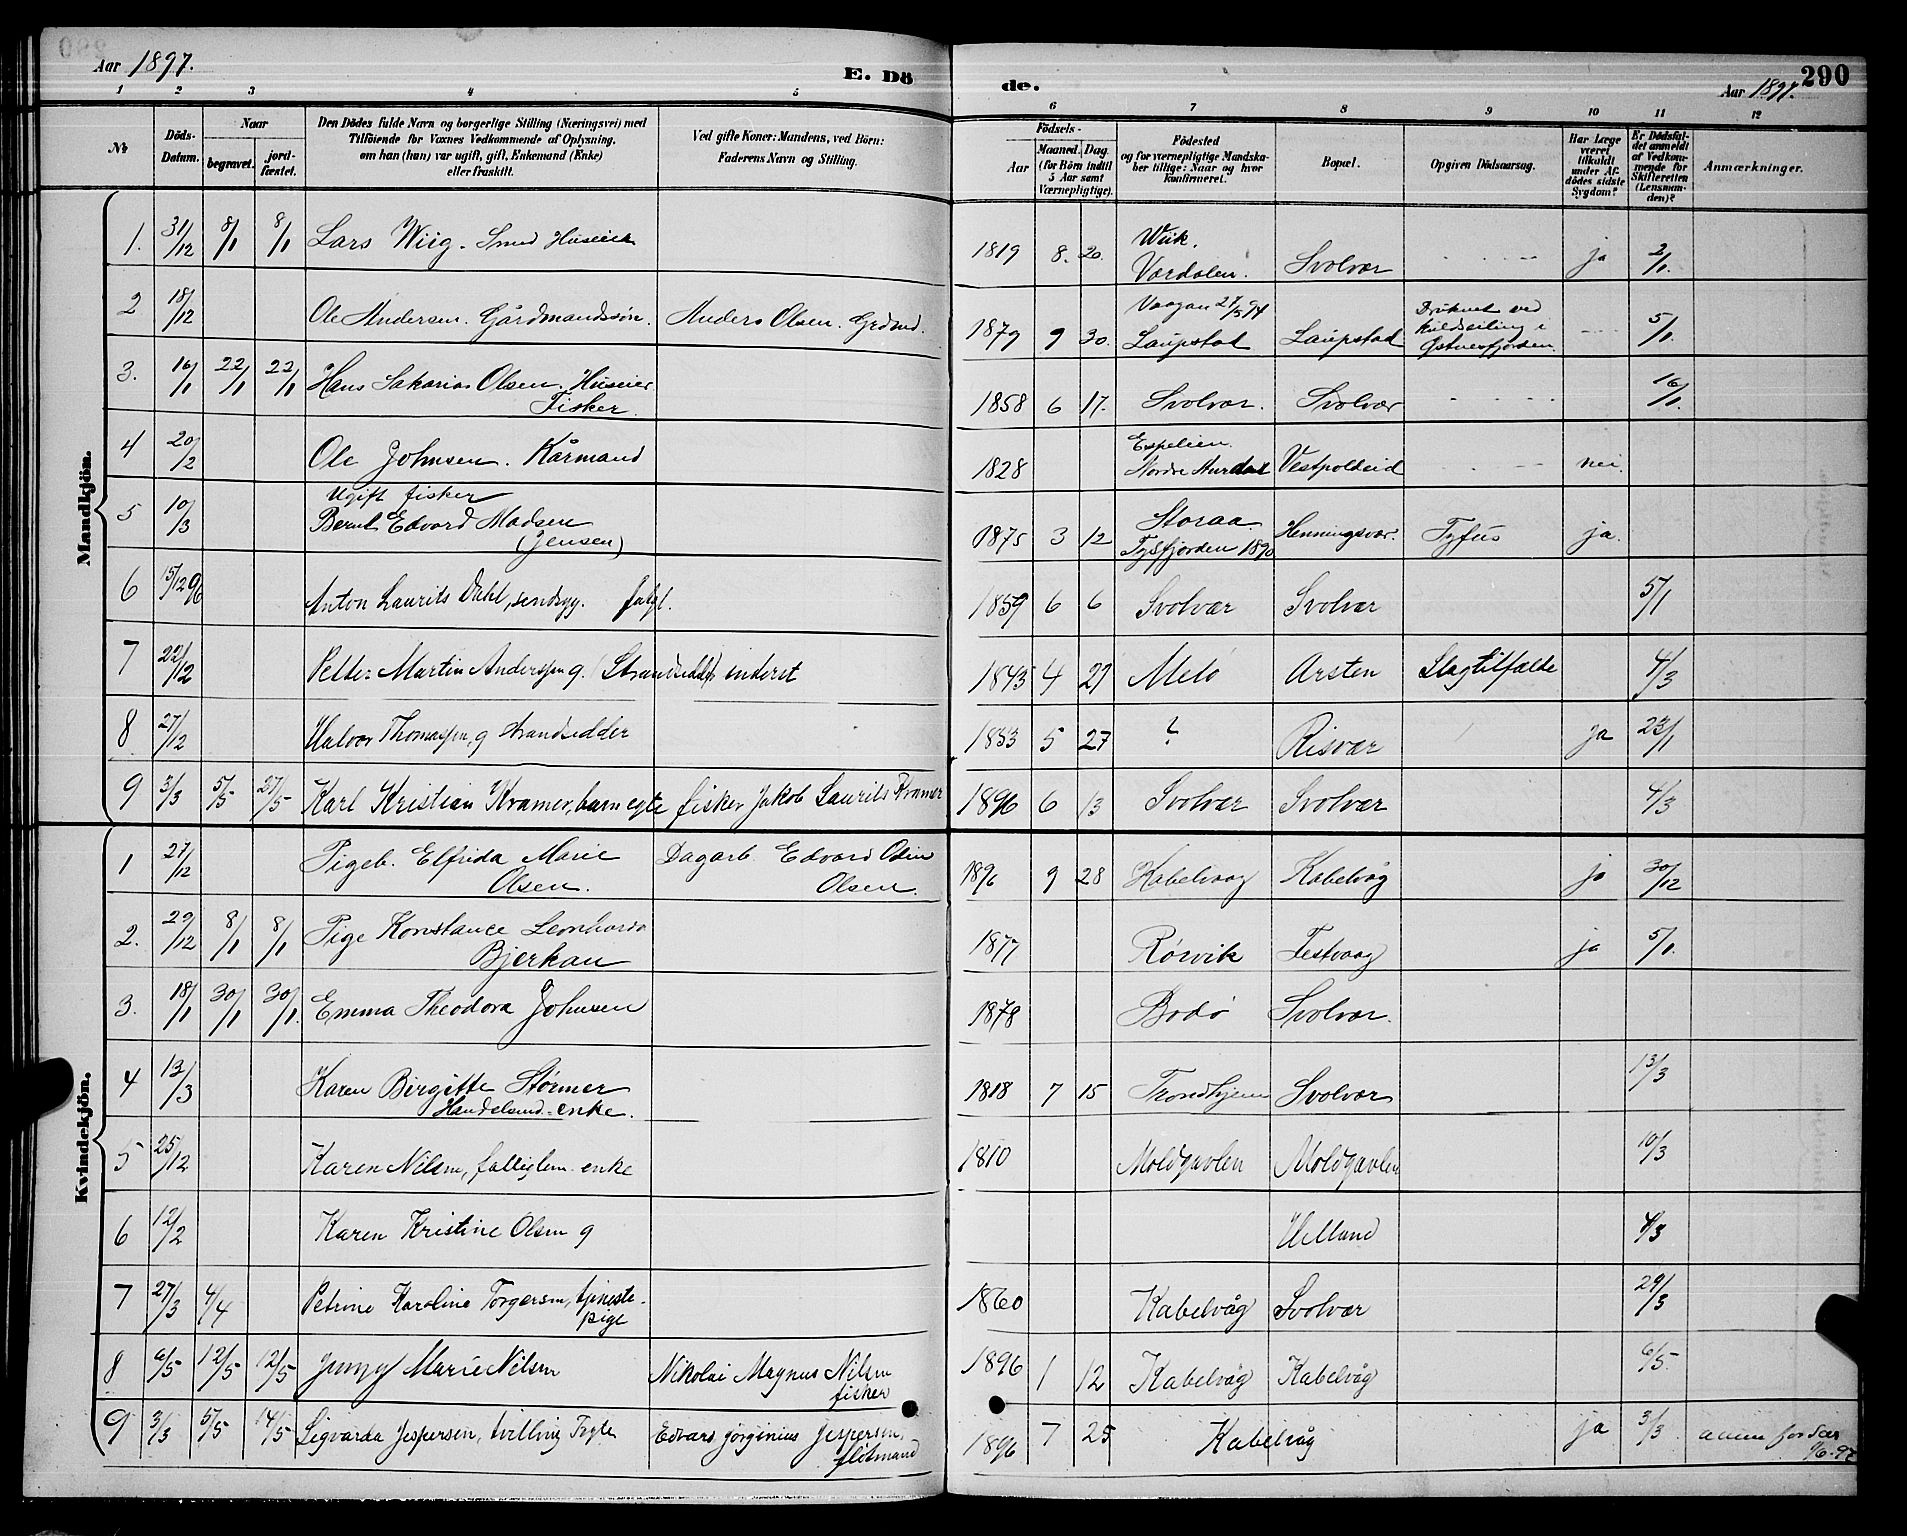 Aar 1897.
E. Dö
de.
Aar 1897.
290
1 2 3 4 5 6 7 8 9 10 11 12
No
Döds-Datum.
Naar
begravet.
jord-fæstet.
Den Dödes fulde Navn og borgerlige Stilling (Næringsvei) med
Tilföiende for Voxnes Vedkommende af Oplysning,
om han (hun) var ugift, gift, Enkemand (Enke)
eller fraskilt.
Ved gifte Koner: Mandens, ved Börn:
Faderens Navn og Stilling.
Födsels-
Aar
Maaned. Dag
(for Börn indtil
5 Aar samt
Værnepligtige).
Födested
og for værnepligtige Mandska-
ber tillige: Naar og hvor
konfirmeret.
Bopæl.
Opgiven Dödsaarsag.
Har Læge
været
tilkaldt
under Af-
dödes sidste
Sygdom?
Er Dödsfal-
det anmeldt
af Vedkom-
mende for
Skifteretten
(Lensman-
den)?
Anmærkninger.
Mandkjön.
1. 31/12 8/1 8/1 Lars Wiig. Smed Huseier 1819 8. 20. Wiik. Værdalen. Svolvær ja 2/1.
2 18/12 Ole Andersen. Gårdmandssön. Anders Olsen. Grdmd. 1879 9 30. Vaagan 27/5 94 Laupstad Laupstad Druknet ved kuldseiling i Østnesfjorden 5/1.
3. 16/1 22/1 22/1 Hans Sakarias Olsen. Huseier Fisker. 1858 6 17. Svolvær. Svolvær 16/1.
4 20/2 Ole Johnsen. Kårmand 1828 Espelien. Nordre Aurdal Vestpoldeid nei.
5 10/3 Ugift fisker Bernt Edvard Madsen (Jensen) 1875 3 12 Storaa. Tysfjorden 1890 Henningsvær. Tyfus ja.
6 15/12 96 Anton Laurits Dahl, sindsyg. 1859 6 6 Svolvær Svolvær 5/1
7 22/12 Petter Martin Anderssen g. (Strandsidder) 1843 4 27 Melö Arsten Slagtilfælde 4/3
8 27/12 Halvor Thomassen, g strandsidder 1833 5 27 ? Risvær ja 23/1
9 3/3 5/5 27/5 Karl Kristian Kramer, barn egte fisker Jakob Laurits Kramer 1896 6 13 Svolvær Svolvær 4/3
Kvindekjön.
1 27/12 Pigeb. Elfrida Marie Olsen. Dagarb. Edvard Odin Olsen. 1896 9 28 Kabelvaag Kabelvåg ja 30/12
2. 29/12 8/1 8/1 Pige Konstance Leonharda Bjerkan 1877 Rörvik Festvaag ja 5/1.
3. 18/1 30/1 30/1. Emma Theodora Johnsen 1878 Bodö Svolvær.
4 13/3 Karen Birgitte Störmer Handelsmd.-enke. 1818 7 15 Trondhjem Svolvær 13/3
5 25/12 Karen Nilsen, fattiglem enke 1810 Moldgavlen Moldgavlen 10/3
6 12/2 Karen Kristine Olsen g Helland 4/3
7 27/3 4/4 Petrine Karoline Torgersen, tjenestepige 1860 Kabelvåg Svolvær 29/3
8 6/5 12/5 12/5 Jenny Marie Nilsen Nikolai Magnus Nilsen fisker 1896 1 12 Kabelvåg Kabelvåg 6/5.
9 3/3 5/5 14/5 Sigvarda Jespersen, tvilling Edvars Jörginius Jespersen, 1896 7 25 Kabelvåg ja 3/3